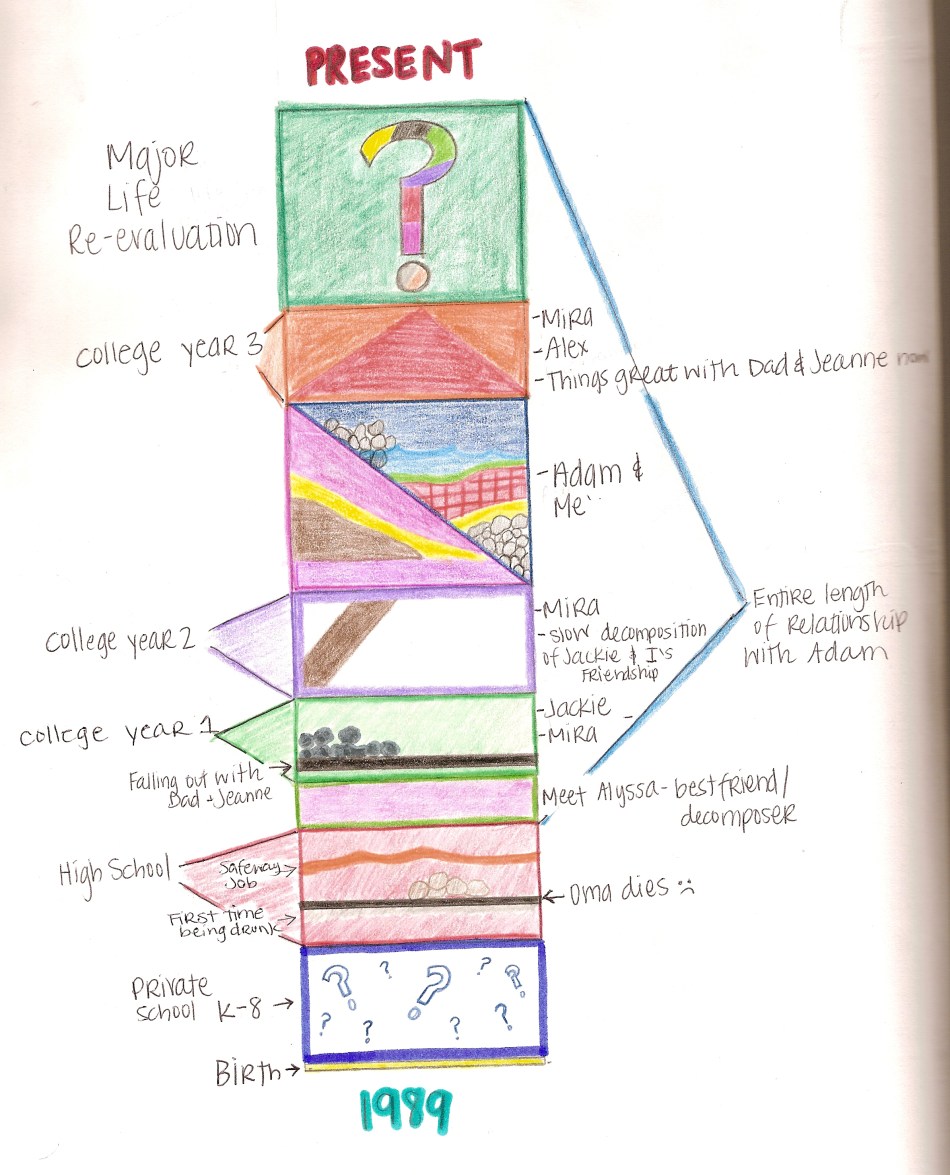 PRESENT
Major
Life
Re-evaluation
?
College year 3
-Mira
-Alex
-Things great with Dad & Jeanne
-Adam &
Me
College year 2
-Mira
-Slow decomposition
of Jackie & I's
Friendship
Entire length
of Relationship
with Adam
College year 1
-Jackie
-Mira
Falling out with
Dad + Jeanne
Meet Alyssa-best friend/
decomposer
High School
Safeway
Job
Oma dies
First time
being drunk
Private
School K-8
? ? ? ? ?
? ? ? ?
Birth
1989